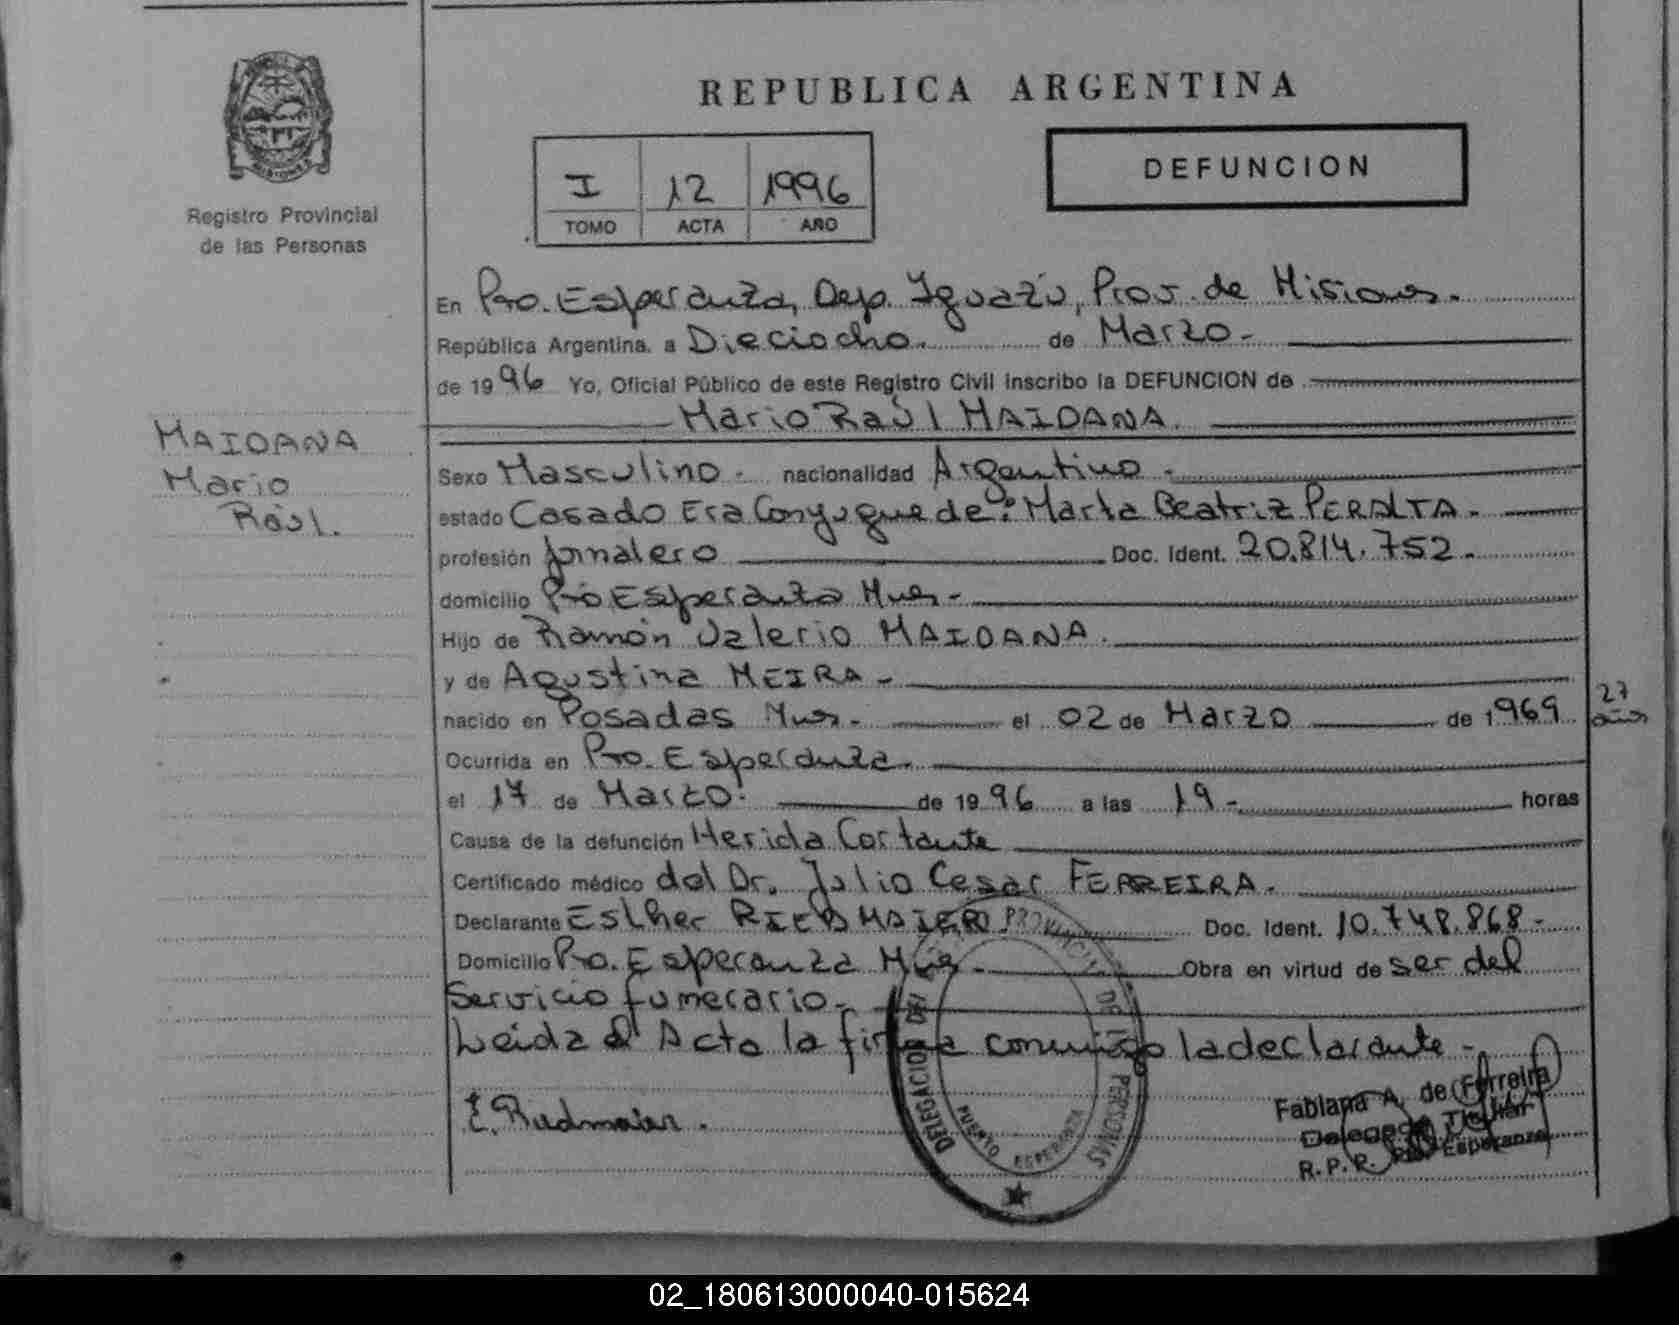 REPUBLICA ARGENTINA
I 12 1996
TOMO ACTA AÑO
DEFUNCION
Registro Provincial
de las Personas
En Pto. Esperanza, Dep. Iguazú, Prov. de Misiones.
República Argentina, a Dieciocho. de Marzo.
de 1996 Yo, Oficial Público de este Registro Civil inscribo la DEFUNCION de
Mario Raúl MAIDANA.
MAIDANA
Mario
Raúl.
Sexo Masculino. nacionalidad Argentino.
estado Casado Era Conyugue de: Marta Beatriz PERALTA.
profesión Jornalero Doc. Ident. 20.814.752.
domicilio Pto Esperanza Mnes.
Hijo de Ramón Valerio MAIDANA.
y de Agustina MEIRA.
nacido en Posadas Mnes. el 02 de Marzo de 1969 27 años
Ocurrida en Pto. Esperanza.
el 17 de Marzo. de 1996 a las 19. horas
Causa de la defunción Herida Cortante
Certificado médico del Dr. Julio Cesar FERREIRA.
Declarante Esther Doc. Ident. 10.748.868.
Domicilio Pto. Esperanza Mnes. Obra en virtud de ser del
Servicio fumerario.
Leida el Acta la firma conmigo la declarante.
DELEGACION DEL PROVINCIAL DE PERSONAS
PUERTO ESPERANZA
E.
Fabiana A. de Ferreira
Delegada Titular
R.P.P. Pto Esperanza
02_180613000040-015624